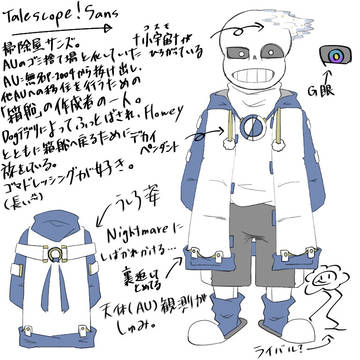 Talescope!Sans
掃除屋サンズ。
AUのゴミ捨て場と化していた
から抜け出し、
他AUへの移住を行うための
「箱舟」の作成者の一人。
によってふっとばされ、Flowey
とともに箱舟へ戻るために
旅をしている。
ゴマドレッシングが好き。
コスモ
小宇宙が
ひろがっている
G眼
デカイ
ペンダント
うしろ姿
Nightmareに
しばかれかける…
裏返して
とめてる
天体(AU)観測が
しゅみ。
ライバル?